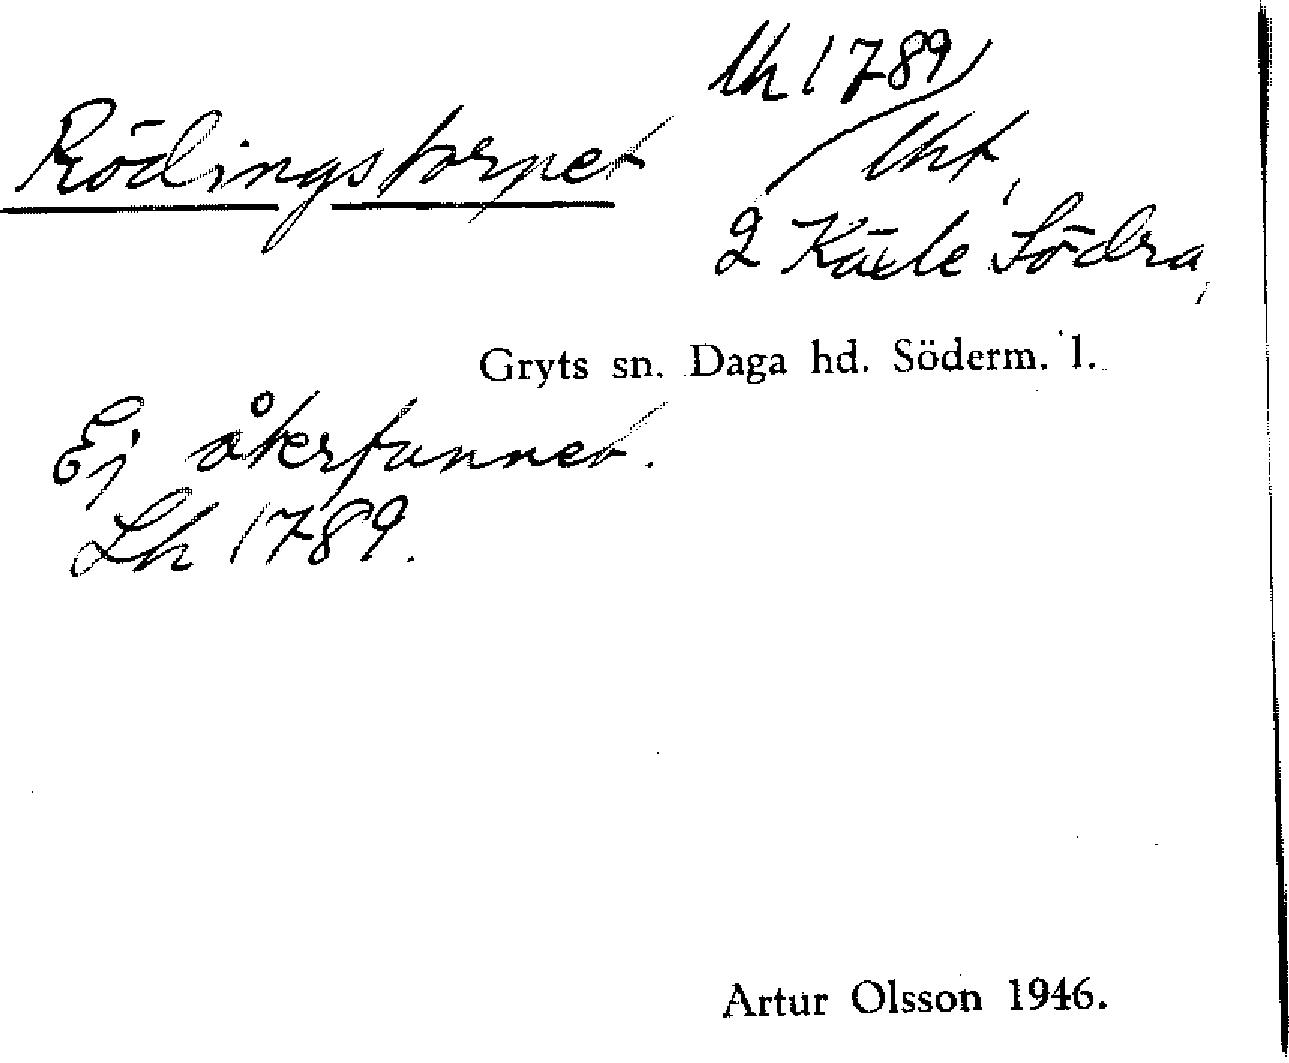 lh 1789
Rödingstorpet
lht,
2 Käxle Södra,
Gryts sn. Daga hd. Söderm. l.
Ej återfunnet.
Lh 1789.
Artur Olsson 1946.